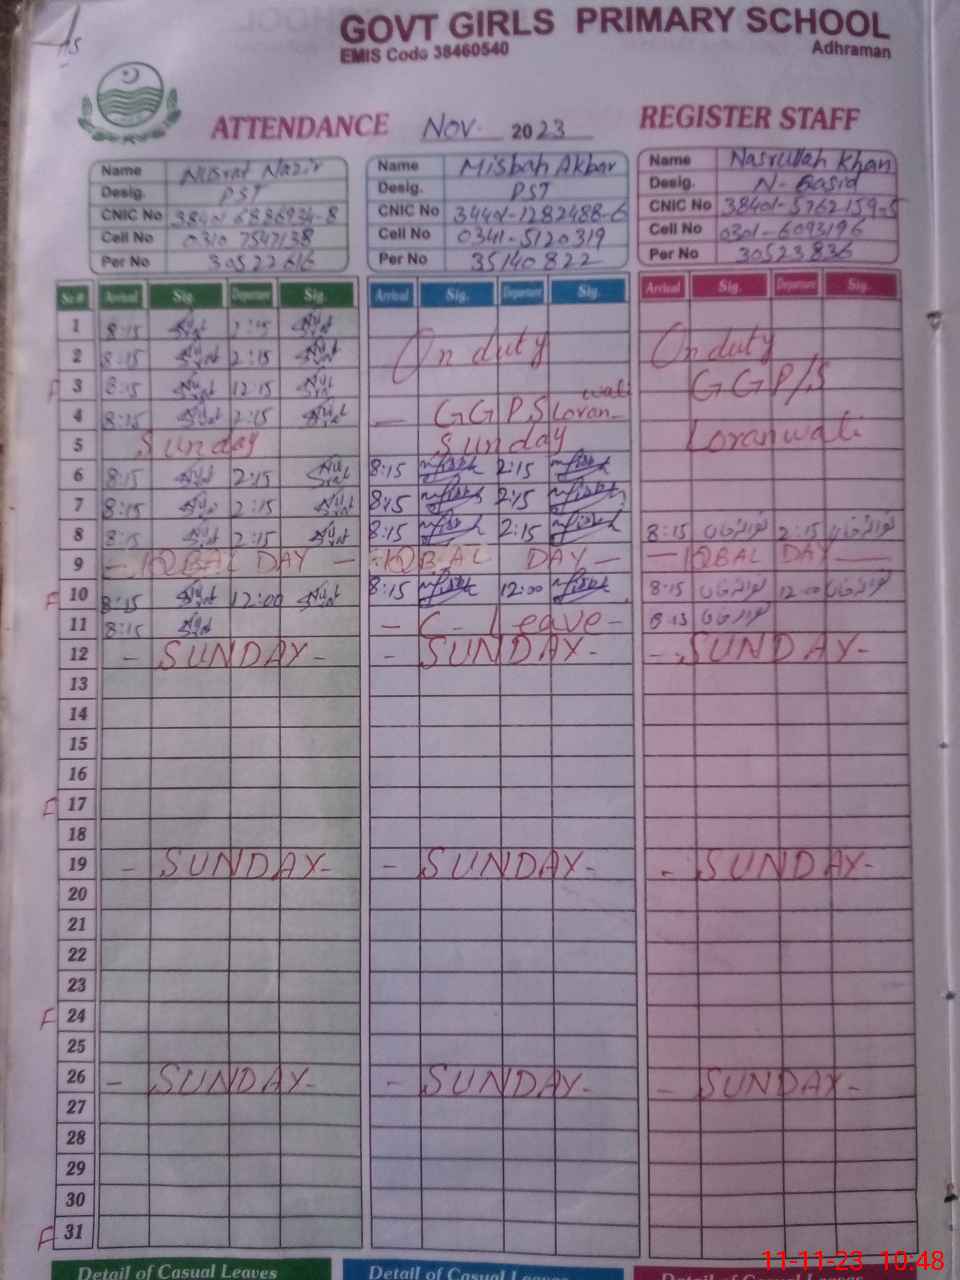 GOVT GIRLS PRIMARY SCHOOL
EMIS Code 38460540 Adhraman
ATTENDANCE Nov. 2023 REGISTER STAFF
Name Nusrat Nazir Name Misbah Akbar Name Nasrullah Khan
Desig. PST Desig. PST Desig. N-Qasid
CNIC No CNIC No 34401-1282488-6 CNIC No 38401-5762159-5
Cell No 0310 7547138 Cell No 0341-5120319 Cell No 0301-6093196
Per No 30522616 Per No 35140822 Per No 30523836
Sr.# Arrival Sig. Departure Sig. Arrival Sig. Departure Sig. Arrival Sig. Departure Sig.
1 8:15 2:15
2 8:15 2:15 On duty On duty
F 3 8:15 12:15 GGP/S
4 8:15 2:15 — GGPS Loran- wali
5 Sunday Sunday Loranwali
6 8:15 2:15 8:15 2:15
7 8:15 2:15 8:15 2:15
8 8:15 2:15 8:15 2:15 8:15 2:15
9 - IQBAL DAY - - IQBAL DAY - - IQBAL DAY -
F 10 8:15 12:00 8:15 12:00 8:15 12:00
11 8:15 - C- Leave - 8:15
12 - SUNDAY - - SUNDAY - - SUNDAY -
13
14
15
16
F 17
18
19 - SUNDAY - - SUNDAY - - SUNDAY -
20
21
22
23
F 24
25
26 - SUNDAY - - SUNDAY - - SUNDAY -
27
28
29
30
F 31
Detail of Casual Leaves Detail of Casual Leaves Detail of Casual Leaves
11-11-23 10:48